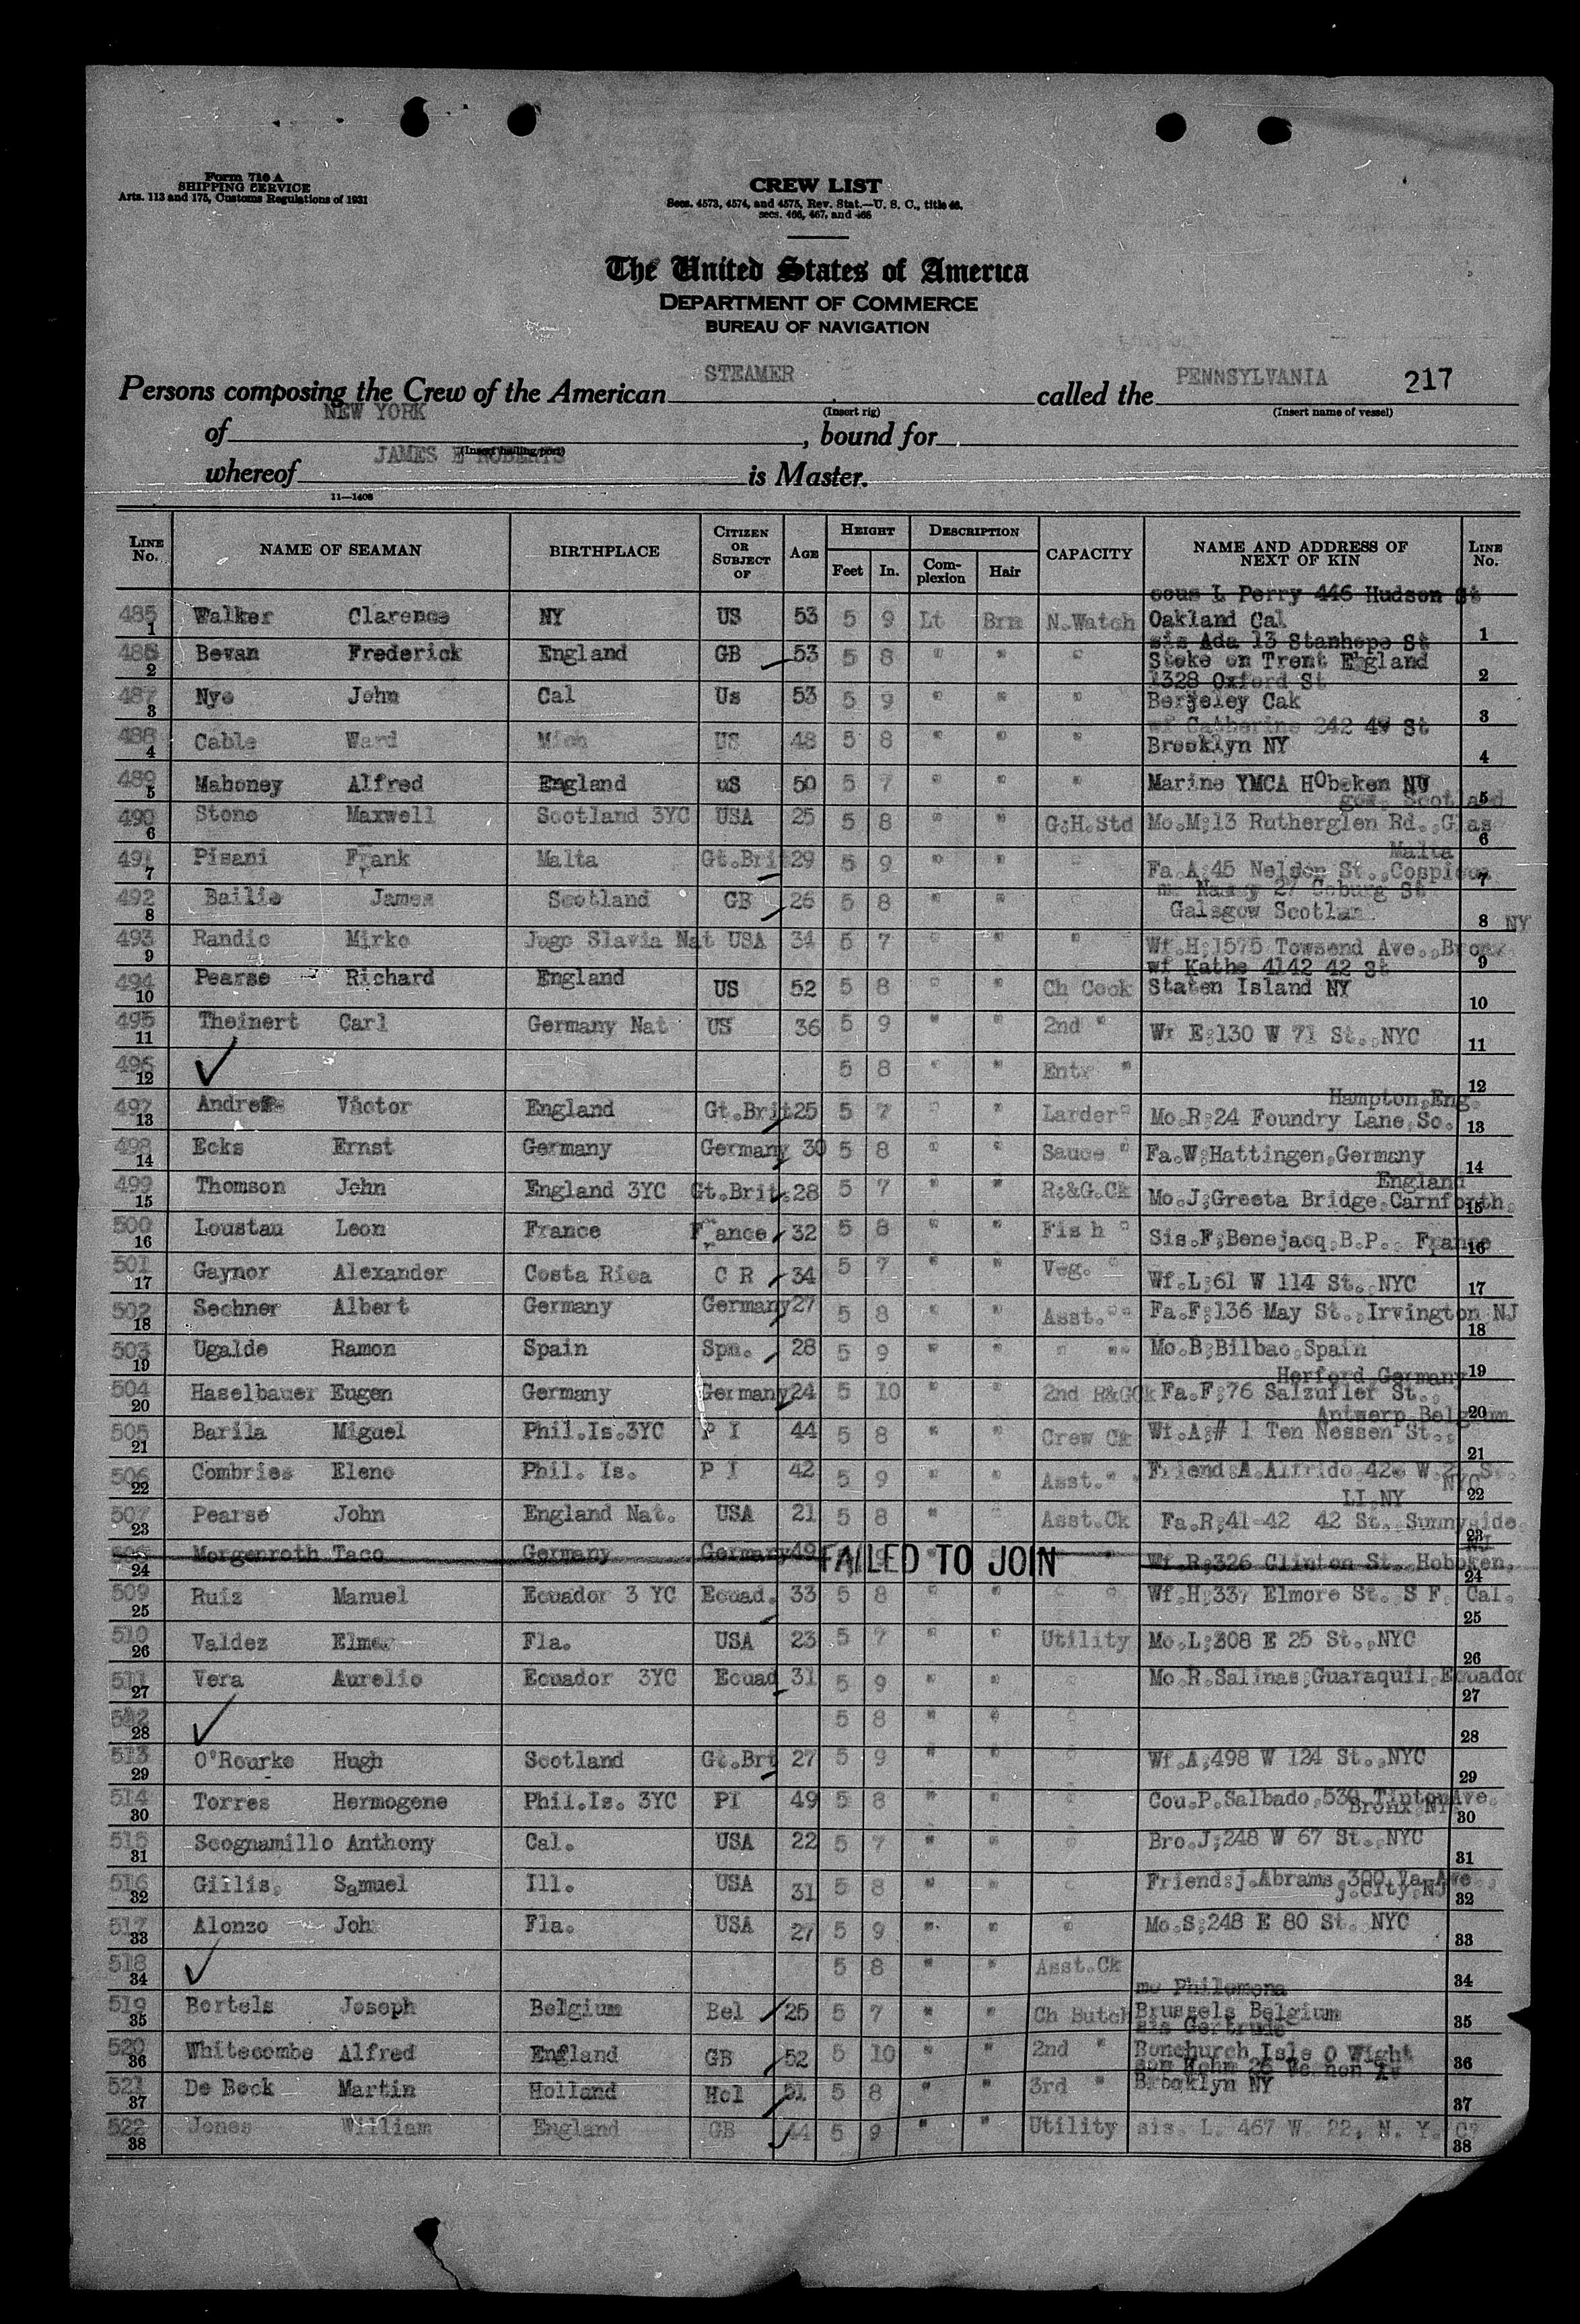 Form 710 A
SHIPPING SERVICE
Arts. 113 and 175, Customs Regulations of 1931
CREW LIST
Secs. 4573, 4574, and 4575, Rev. Stat.—U. S. C., title 46,
secs. 466, 467, and 468
The United States of America
DEPARTMENT OF COMMERCE
BUREAU OF NAVIGATION
Persons composing the Crew of the American STEAMER called the PENNSYLVANIA 217
(Insert rig) (Insert name of vessel)
of NEW YORK, bound for
(Insert hailing port)
whereof JAMES E ROBERTS is Master.
11—1408
LINE No. NAME OF SEAMAN BIRTHPLACE CITIZEN OR SUBJECT OF AGE HEIGHT Feet In. DESCRIPTION Complexion Hair CAPACITY NAME AND ADDRESS OF NEXT OF KIN LINE No.
485 1 Walker Clarence NY US 53 5 9 Lt Brn N.Watch cous L Perry 446 Hudson St Oakland Cal 1
486 2 Bevan Frederick England GB 53 5 8 " " " sis Ada 13 Stanhope St Stoke on Trent England 2
487 3 Nye John Cal Us 53 5 9 " " " 1328 Oxford St Berjeley Cak 3
488 4 Cable Ward Mich US 48 5 8 " " " wf Catherine 242 49 St Brooklyn NY 4
489 5 Mahoney Alfred England uS 50 5 7 " " " Marine YMCA HOboken NJ 5
490 6 Stone Maxwell Scotland 3YC USA 25 5 8 " " G.H.Std Mo.M;13 Rutherglen Rd.,Glas gow, Scotland 6
491 7 Pisani Frank Malta Gt.Bri 29 5 9 " " " Fa.A;45 Nelson St.,Cospicua Malta 7
492 8 Bailie James Scotland GB 26 5 8 " " " 27 Coburg St Galsgow Scotlan 8
493 9 Randic Mirko Jugo Slavia Nat USA 34 5 7 " " " Wf.H;1575 Towsend Ave.,Bronx NY 9
494 10 Pearse Richard England US 52 5 8 " " Ch Cook wf Kathe 4142 42 St Staten Island NY 10
495 11 Theinert Carl Germany Nat US 36 5 9 " " 2nd " Wf E;130 W 71 St.,NYC 11
496 12 ✓ 5 8 " " Entr " 12
497 13 Andrews Victor England Gt.Brit 25 5 7 " " Larder" Mo.R;24 Foundry Lane,So. Hampton,Eng. 13
498 14 Ecks Ernst Germany Germany 30 5 8 " " Sauce " Fa.W;Hattingen,Germany 14
499 15 Thomson John England 3YC Gt.Brit. 28 5 7 " " R.&G.Ck Mo.J;Greeta Bridge,Carnforth, England 15
500 16 Loustau Leon France France 32 5 8 " " Fis h " Sis.F;Benejacq,B.P., France 16
501 17 Gaynor Alexander Costa Rica C R 34 5 7 " " Veg. " Wf.L;61 W 114 St.,NYC 17
502 18 Sechner Albert Germany Germany 27 5 8 " " Asst."" Fa.F;136 May St.,Irvington NJ 18
503 19 Ugalde Ramon Spain Spn. 28 5 9 " " " "" Mo.B;Bilbao,Spain 19
504 20 Haselbauer Eugen Germany Germany 24 5 10 " " 2nd R&GCk Fa.F;76 Salzufler St., Herford,Germany 20
505 21 Barila Miguel Phil.Is.3YC P I 44 5 8 " " Crew Ck Wf.A;# 1 Ten Nessen St., Antwerp,Belgium 21
506 22 Combries Eleno Phil. Is. P I 42 5 9 " " Asst." " Friend:A.Alfrido,42 W.2 St. NYC 22
507 23 Pearse John England Nat. USA 21 5 8 " " Asst.Ck Fa.R;41-42 42 St. Sunnyside, LI,NY 23
508 24 Morgenroth Taco Germany Germany 49 FAILED TO JOIN " Wf.R;326 Clinton St. Hoboken, NJ 24
509 25 Ruiz Manuel Ecuador 3 YC Ecuad. 33 5 8 " " " " Wf.H;337 Elmore St. S F. Cal. 25
510 26 Valdez Elmer Fla. USA 23 5 7 " " Utility Mo.L;308 E 25 St.,NYC 26
511 27 Vera Aurelio Ecuador 3YC Ecuad 31 5 9 " " " Mo.R.Salinas;Guaraquil,Ecuador 27
512 28 ✓ 5 8 " " " 28
513 29 O'Rourke Hugh Scotland Gt.Brt 27 5 9 " " " Wf.A;498 W 124 St.,NYC 29
514 30 Torres Hermogene Phil.Is. 3YC PI 49 5 8 " " " Cou.P.Salbado,530 TintonAve. Bronx NY. 30
515 31 Scognamillo Anthony Cal. USA 22 5 7 " " " Bro.J;248 W 67 St.,NYC 31
516 32 Gillis, Samuel Ill. USA 31 5 8 " " " Friend:j.Abrams,300 Va.Ave., j.City,NJ 32
517 33 Alonzo Joh Fla. USA 27 5 9 " " " Mo.S;248 E 80 St. NYC 33
518 34 ✓ 5 8 " " Asst.Ck 34
519 35 Bertels Joseph Belgium Bel 25 5 7 " " Ch Butch mo Philomena Brussels Belgium 35
520 36 Whitecombe Alfred England GB 52 5 10 " " 2nd " sis Gertrude Bonchurch Isle O Wight 36
521 37 De Beck Martin Holland Hol 51 5 8 " " 3rd " Brooklyn NY 37
522 38 Jones William England GB 44 5 9 " " Utility sis. L. 467 W. 22, N. Y. C. 38